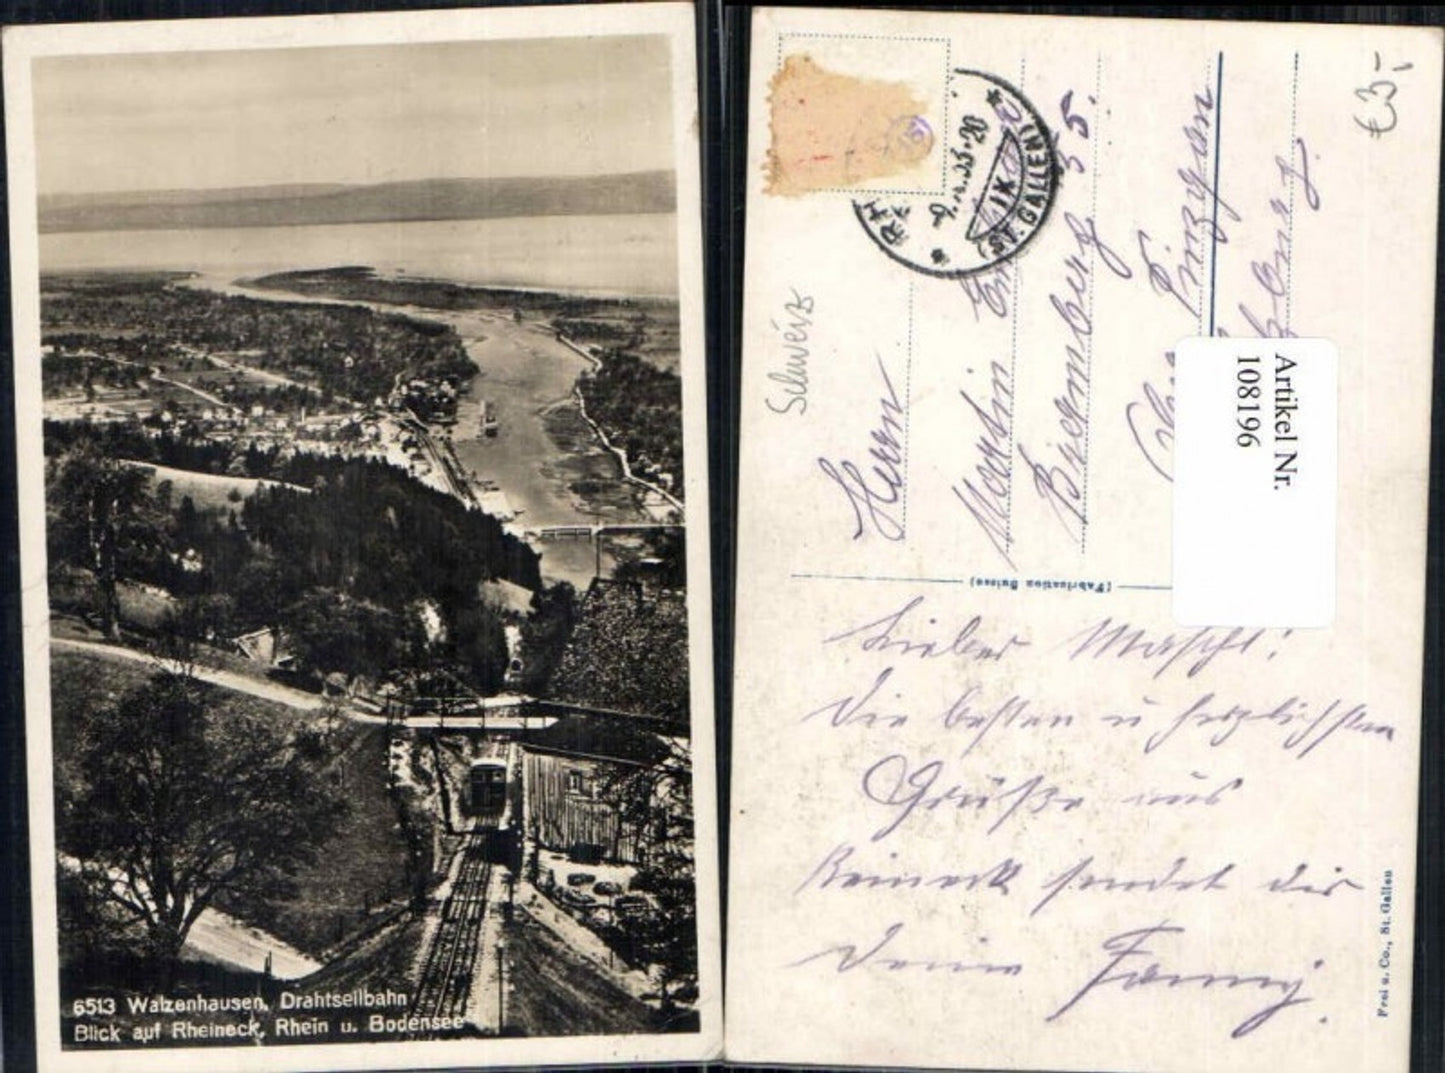 6513 Walzenhausen, Drahtseilbahn
Blick auf Rheineck, Rhein u. Bodensee
Schweiz
€3,-
RH
(ST. GALLEN)
Herrn
Martin
55.
Pinzgau
Artikel Nr.
108196
(Fabrication Suisse)
Lieber
Die besten u herzlichsten
Grüße aus
Reineck sendet dir
deine Fanny.
Frei u. Co., St. Gallen